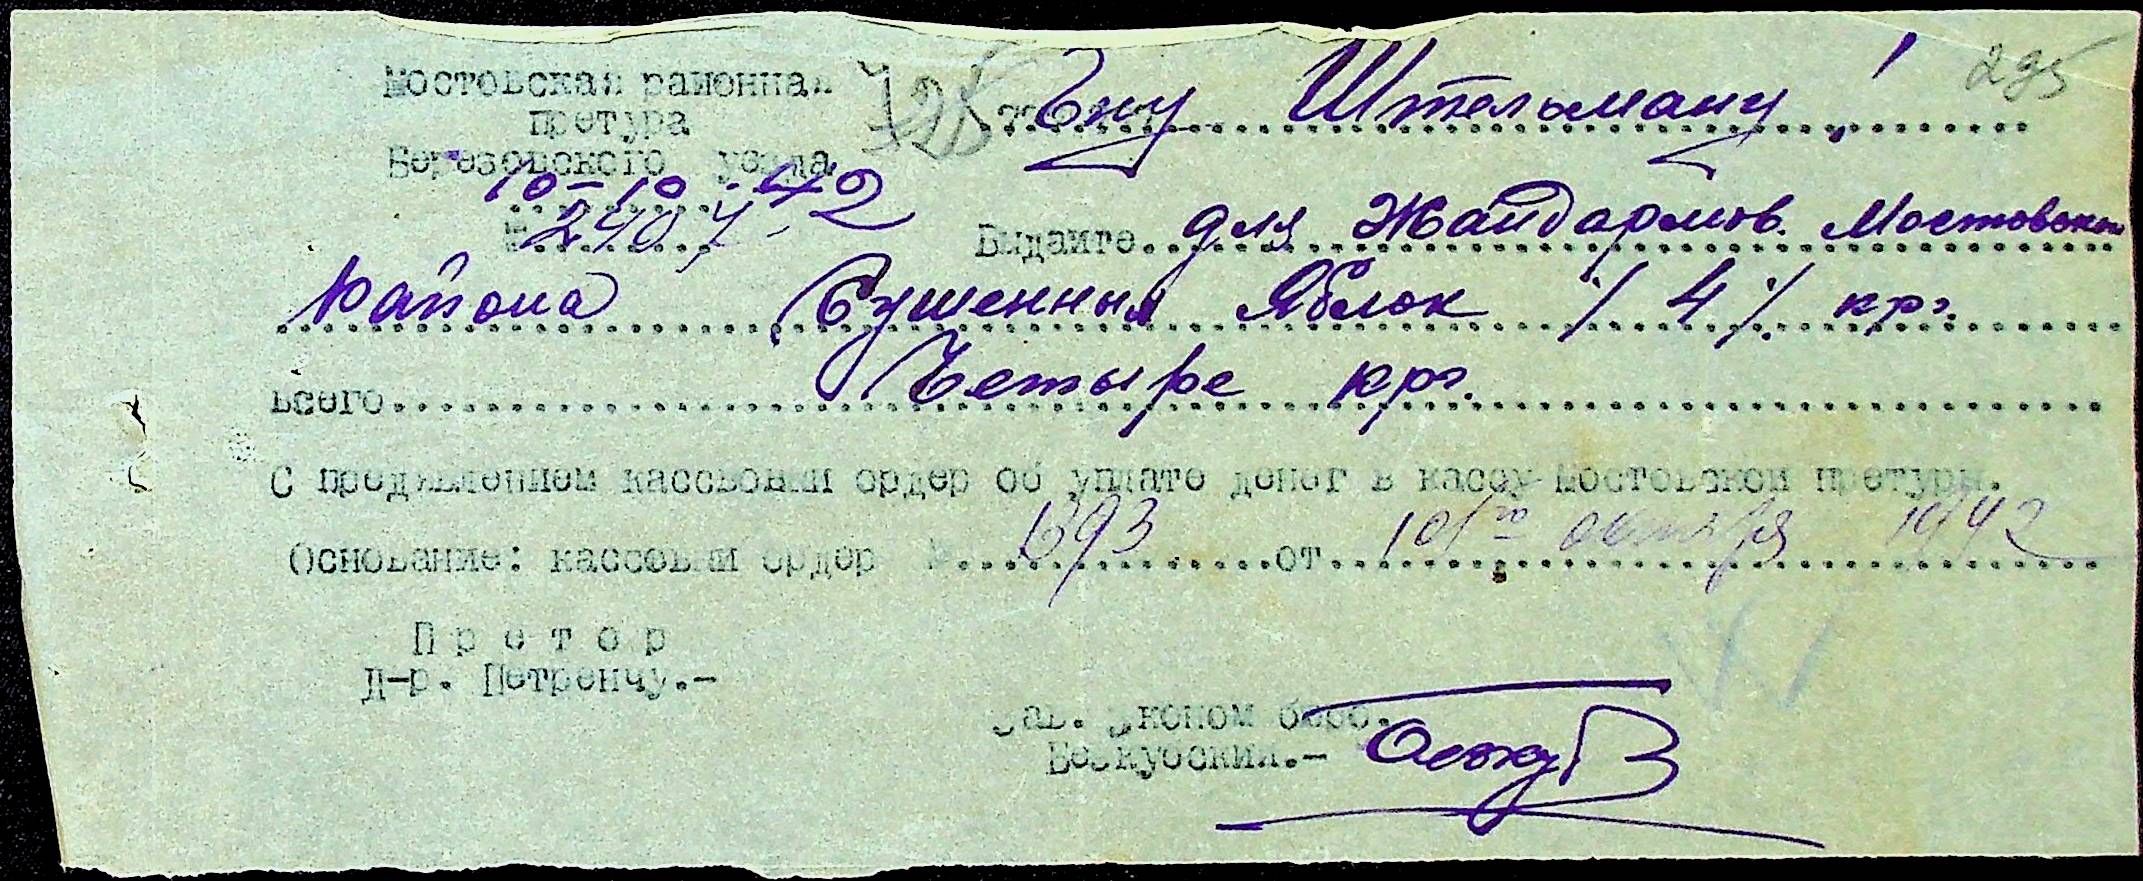 Мостовская районная
претура
Березовского уезда
10-10-42
№ 2407
728
Г-ну Штельману!
295
Выдайте для Жандармов. Мостовского
района Сушенных Яблок /4/. кгр.
Всего Четыре кгр.
С предявлением кассовый ордер об уплате денег в кассу Мостовской претуры.
Основание: кассовый ордер № 1693 от 10го октября 1942
Претор
Д-р. Петренчу.-
Зав. Эконом бюро.
Боскубский.-